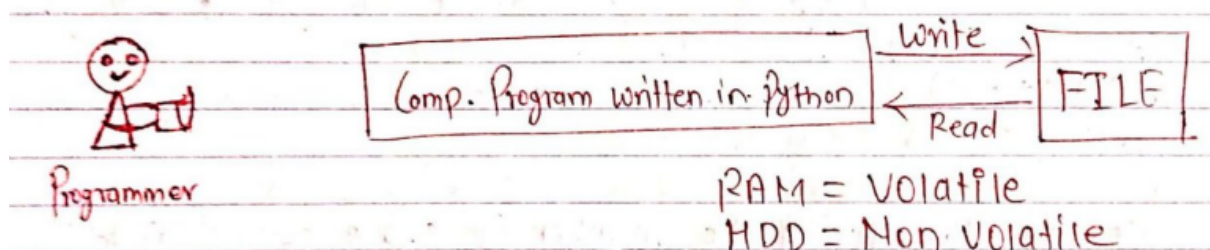 Write
Comp. Program written in Python
FILE
Read
Programmer
RAM = Volatile
HDD = Non Volatile